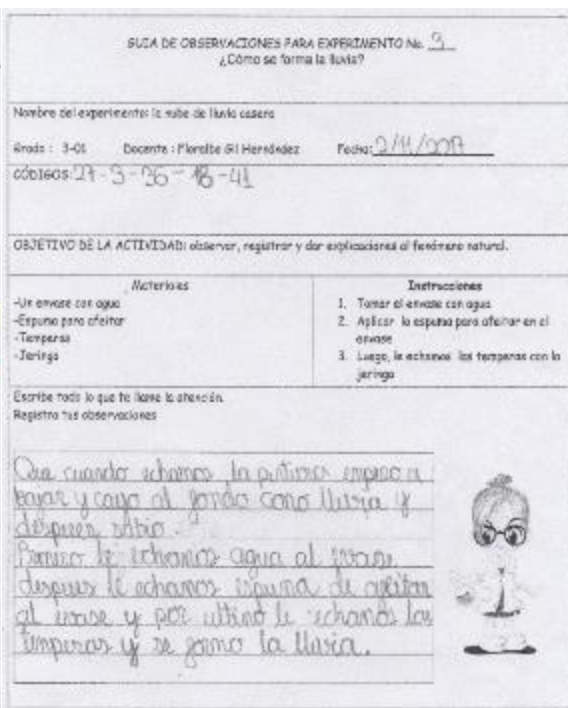 GUIA DE OBSERVACIONES PARA EXPERIMENTO No. 3
¿Cómo se forma la lluvia?
Nombre del experimento: la nube de lluvia casera
Grado : 3-01 Docente : Floralba Gil Hernández Fecha: 2/11/2017
CÓDIGOS: 27 - 9 - 36 - 18 - 41
OBJETIVO DE LA ACTIVIDAD: observar, registrar y dar explicaciones al fenómeno natural.
Materiales
-Un envase con agua
-Espuma para afeitar
-Temperas
-Jeringa
Instrucciones
1. Tomar el envase con agua
2. Aplicar la espuma para afeitar en el
envase
3. Luego, le echamos las temperas con la
jeringa
Escribe todo lo que te llame la atención.
Registra tus observaciones
Que cuando echamos la pintura empezo a
bajar y cayo al fondo como lluvia y
despues subio.
le echamos agua al
despues le echamos espuma de afeitar
al envase y por ultimo le echamos las
temperas y se formo la lluvia.